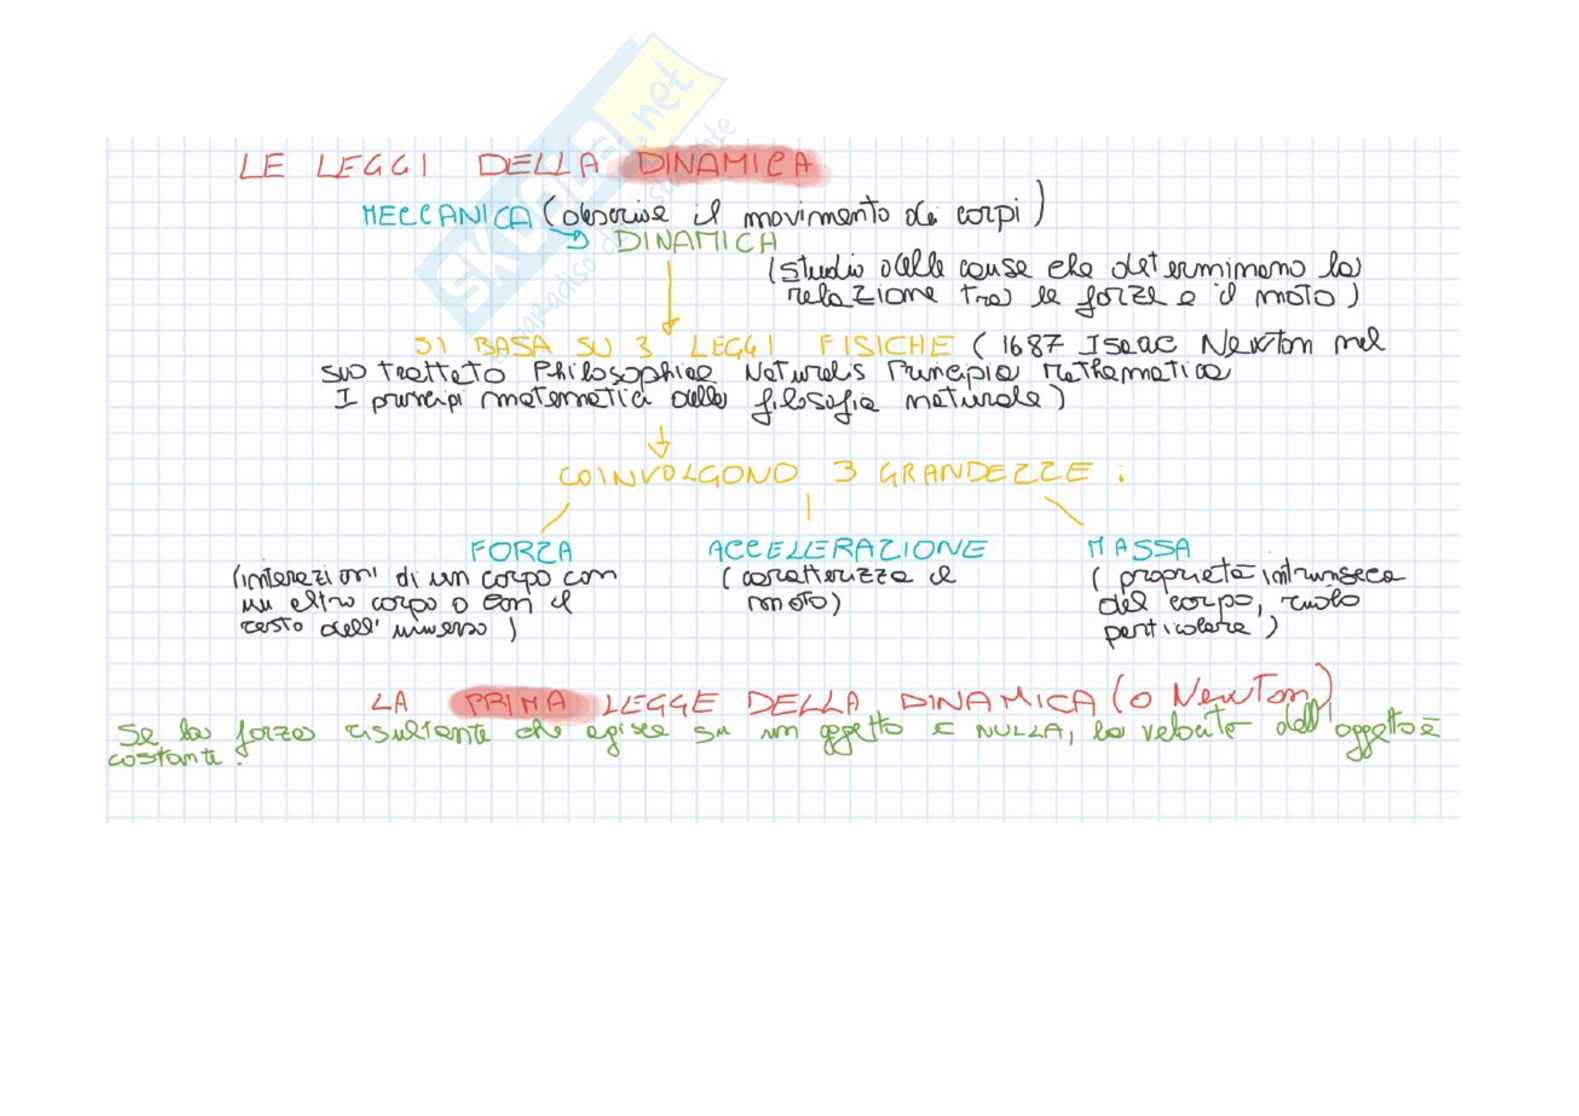 LE LEGGI DELLA DINAMICA
MECCANICA (descrive il movimento dei corpi)
DINAMICA
(studio delle cause che determinano la
relazione tra le forze e il moto)
SI BASA SU 3 LEGGI FISICHE (1687 Isaac Newton nel
suo trattato Philosophiae Naturalis Principia Mathematica
I principi matematici della filosofia naturale)
COINVOLGONO 3 GRANDEZZE:
FORZA ACCELERAZIONE MASSA
(interazioni di un corpo con (caratterizza il (proprietà intrinseca
un altro corpo o con il moto) del corpo, ruolo
resto dell'universo) particolare)
LA PRIMA LEGGE DELLA DINAMICA (o Newton)
Se la forza risultante che agisce su un oggetto è NULLA, la velocità dell'oggetto è
costante.
SKUOLA.net